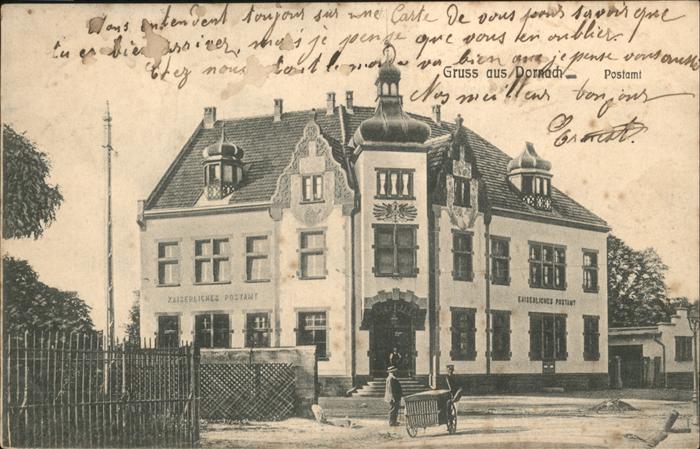 Nous entendent toujour sur une Carte de vous pour savoir que
tu es bien arriver, mais je pense que vous en oublier.
Etez nous tout le va bien que je pense vous aussi
Gruss aus Dornach
Postamt
Nos meilleur bonjour
Ernest.
KAISERLICHES POSTAMT
KAISERLICHES POSTAMT